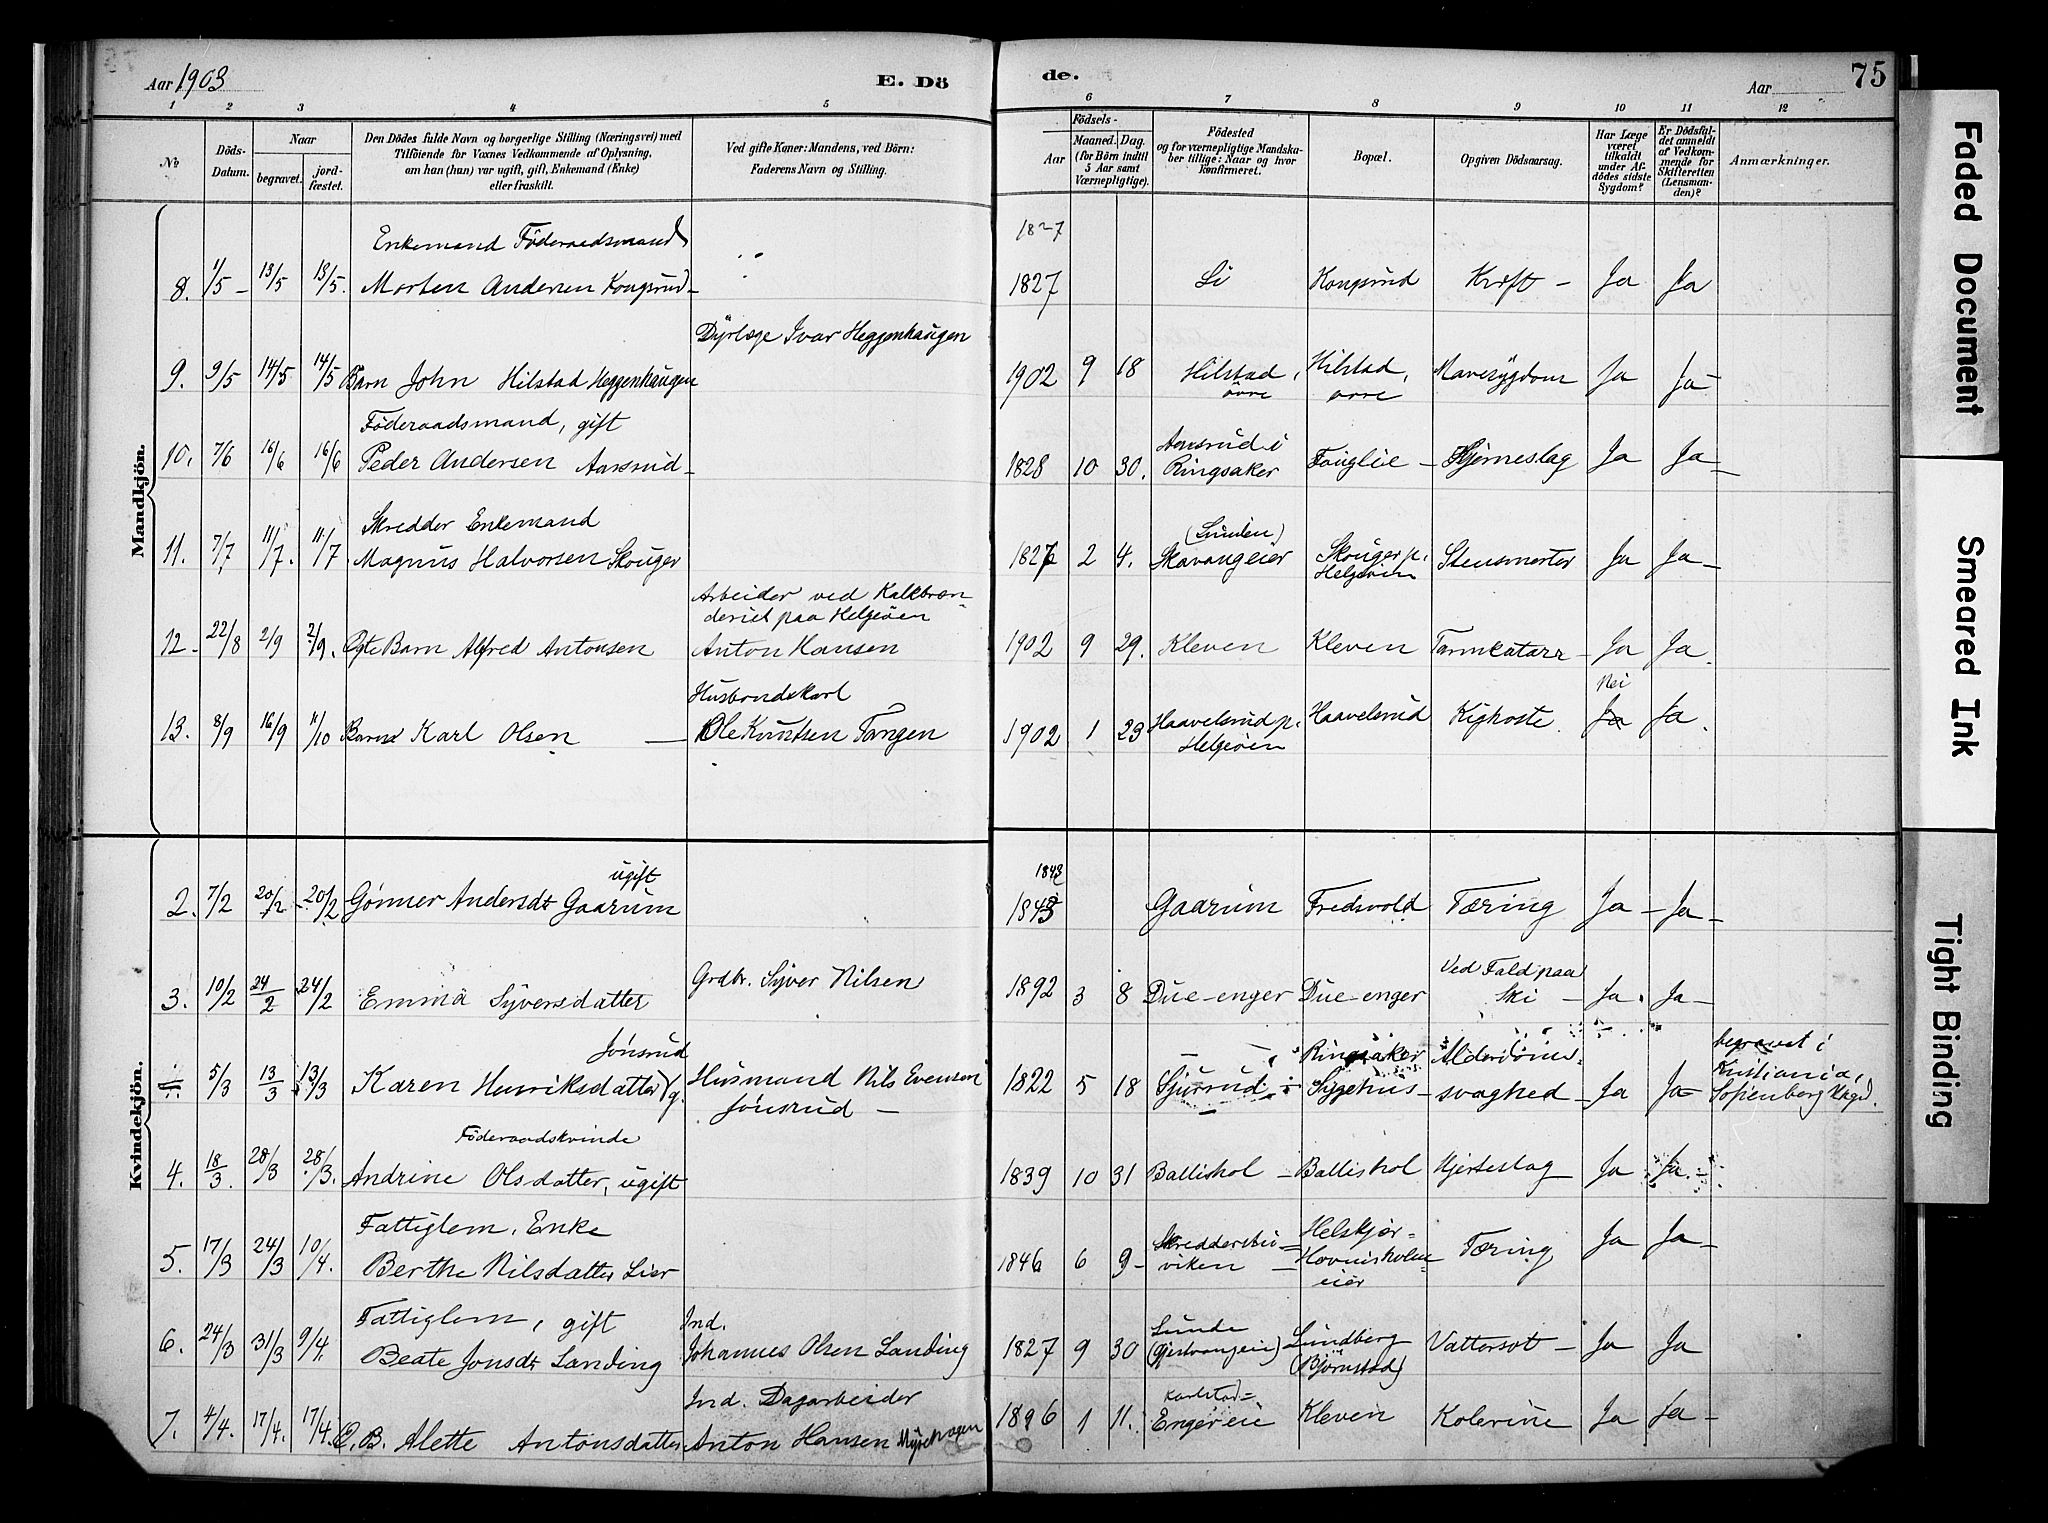 Aar 1903
E. Dö
de.
Aar
75
1 2 3 4 5 6 7 8 9 10 11 12
No
Döds-Datum.
Naar
begravet.
jord-fæstet.
Den Dödes fulde Navn og borgerlige Stilling (Næringsvei) med
Tilföiende for Voxnes Vedkommende af Oplysning,
om han (hun) var ugift, gift, Enkemand (Enke)
eller fraskilt.
Ved gifte Koner: Mandens, ved Börn:
Faderens Navn og Stilling.
Födsels-
Aar
Maaned. Dag.
(for Börn indtil
5 Aar samt
Værnepligtige).
Födested
og for værnepligtige Mandska-
ber tillige: Naar og hvor
konfirmeret.
Bopæl.
Opgiven Dödsaarsag.
Har Læge
været
tilkaldt
under Af-
dödes sidste
Sygdom?
Er Dödsfal-
det anmeldt
af Vedkom-
mende for
Skifteretten
(Lensman-
den)?
Anmærkninger.
Mandkjön.
Enkemand Föderaadsmand
8. 1/5 - 13/5 13/5. Morten Andersen Kongsrud - 1827 Li Kongsrud Kræft - Ja Ja
Dyrlæge Ivar Heggenhaugen
9. 9/5 14/5 14/5 Barn John Hilstad Heggenhaugen 1902 9 18 Hilstad, övre Hilstad, övre Mavesygdom Ja Ja
Föderaadsmand, gift
10. 7/6 16/6 16/6 Peder Andersen Aarsrud - 1828 10 30. Aarsrud i Ringsaker Fouglie - Hjerneslag Ja Ja -
Skredder Enkemand
11. 7/7 11/7. 11/7 Magnus Halvorsen Skouger 1826 2 4. (Lunden) Skavangeier Skouger p. Helgøien Stensmerter Ja Ja -
Arbeider ved Kalkbræn-
deriet paa Helgeöen
12. 22/8 2/9 2/9. Ægte Barn Alfred Antonsen Anton Hansen 1902 9 29. Kleven Kleven Tarmkatarr - Ja Ja.
Husbondskarl
Nei
13. 8/9 16/9 11/10 Barn Karl Olsen - Ole Knutsen Tangen 1902 1 23 Haavelsrud p. Helgeöen Haavelsrud Kighoste. Ja Ja.
Kvindekjön.
ugift
1843
2. 7/2 20/2 - 20/2 Gønner Andersdt Gaarum 1843 Gaarum Fredsvold Tæring Ja - Ja -
3. 10/2 24/2 24/2 Emma Syversdatter Grdbr. Syver Nilsen 1892 3 8 Due-enger Due-enger Ved Fald paa Ski - Ja. Ja -
Jönsrud
5/3 13/3 13/3 Karen Henriksdatter g. Husmand Nils Evensen Jönsrud - 1822 5 18 Sjursrud Ringsaker Sygehus - Alderdoms-svaghed - Ja Ja begravet i Kristiania, Sofienberg Kkgd.
Föderaadskvinde
4. 18/3. 28/3 28/3. Andrine Olsdatter, ugift 1839 10 31 Balliskol - Balliskol Hjerteslag Ja Ja.
Fattiglem, Enke
5. 17/3 24/3 10/4. Berthe Nilsdatter Lier 1846 6 9 - viken - Helskjør = Hovinsholm eier Tæring Ja Ja -
Fattiglem, gift Ind.
6. 24/3 31/3 9/4. Beate Jonsdt Landing Johannes Olsen Landing 1827 9 30 Lunde Lundberg (Bjørnstad) Vattersot - Ja Ja
Ind. Dagarbeider
7. 4/4. 17/4. 17/4. E. B. Alette Antonsdatter Anton Hansen Myrehagen 1896 1 11. Karlstad = Engereie Kleven Kolerine Ja Ja -
Faded Document
Smeared Ink
Tight Binding